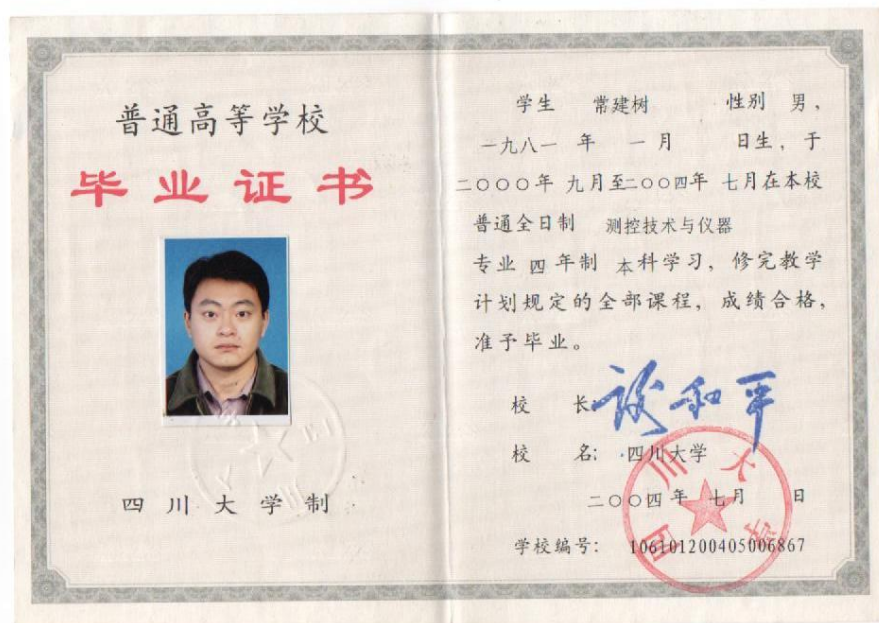 普通高等学校
毕业证书
四川大学制
学生 常建树 性别 男，
一九八一 年 一月 日生，于
二〇〇〇年 九月至二〇〇四年 七月在本校
普通全日制 测控技术与仪器
专业 四 年制 本科学习，修完教学
计划规定的全部课程，成绩合格，
准予毕业。
校 长 谢和平
校 名：四川大学
二〇〇四年 七月 日
学校编号： 106101200405006867
四川大学